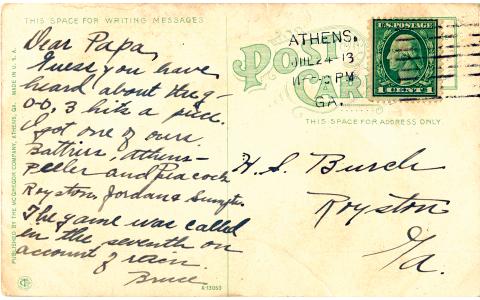 THIS SPACE FOR WRITING MESSAGES
Dear Papa,
Guess you have
heard about the g-
0-0, 3 hits a piece.
I got one of ours.
Battries, Athens-
Peeler and Peacock
Royston, Jordan &
The game was called
in the seventh on
account of rain.
Bruce
PUBLISHED BY THE MCGREGOR COMPANY, ATHENS, GA. MADE IN U.S.A.
A-13053
POST CARD
ATHENS.
JUL 24 13
PM
GA.
U.S. POSTAGE
1 CENT 1
THIS SPACE FOR ADDRESS ONLY.
H. S. Burch
Royston
Ga.